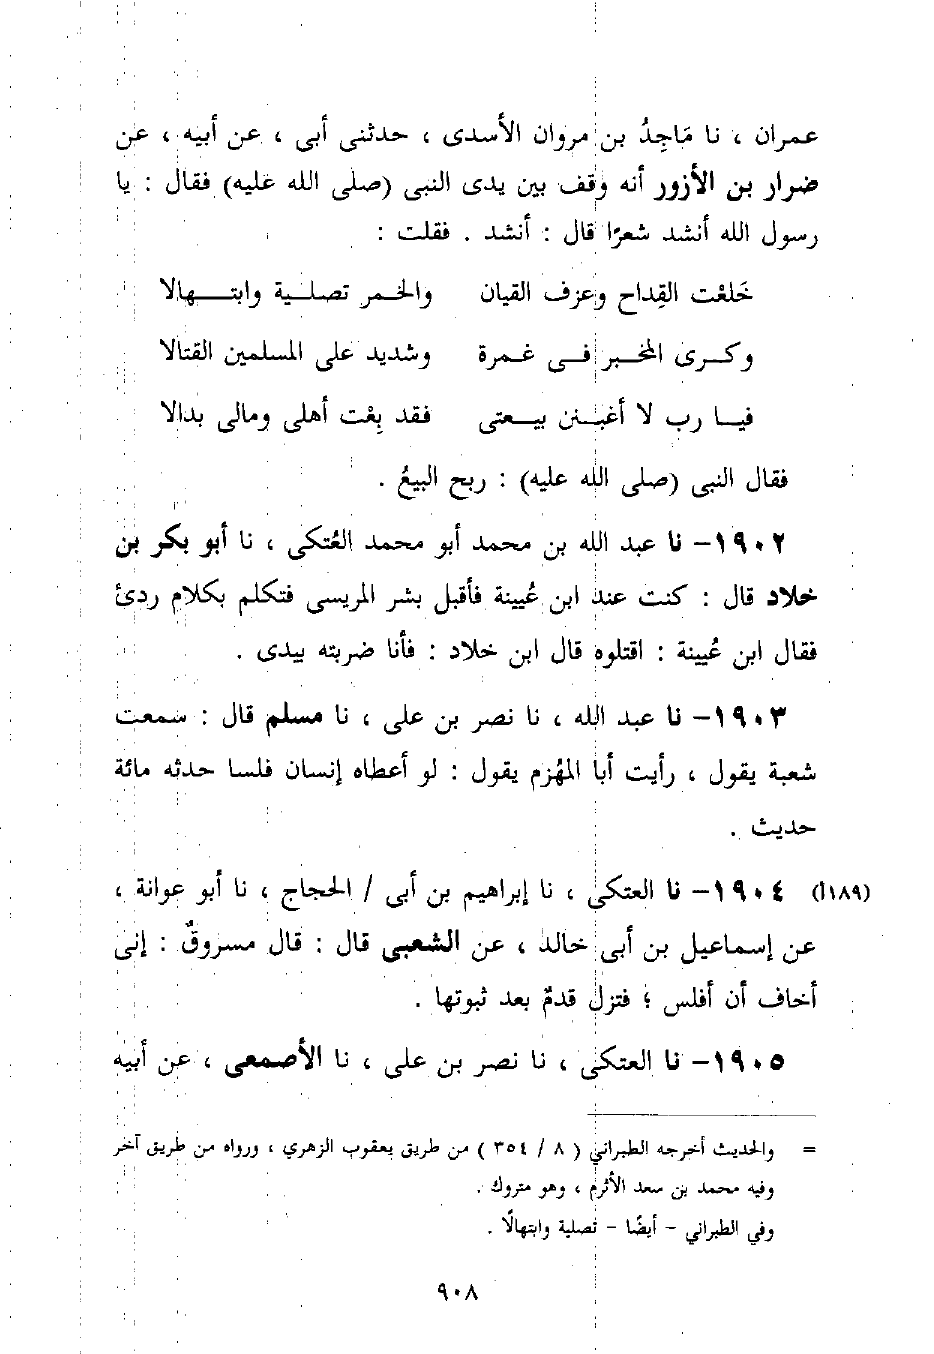 عمران ، نا مَاجِدُ بن مروان الأسدى ، حدثنى أبى ، عن أبيه ، عن
ضرار بن الأزور أنه وقف بين يدى النبى (صلى الله عليه) فقال : يا
رسول الله أنشد شعرًا قال : أنشد . فقلت :
خَلعْت القِداح وعزف القيان والخـمر تصلـية وابتـــهالا
وكـرى المخـبر فـى غـمرة وشديد على المسلمين القتالا
فيـا رب لا أغبـنن بيـعتى فقد بِعْت أهلى ومالى بدالا
فقال النبى (صلى الله عليه) : ربح البيعُ .
١٩٠٢- نا عبد الله بن محمد أبو محمد العُتكى ، نا أبو بكر بن
خلاد قال : كنت عند ابن عُيينة فأقبل بشر المريسى فتكلم بكلام ردئ
فقال ابن عُيينة : اقتلوه قال ابن خلاد : فأنا ضربته بيدى .
١٩٠٣- نا عبد الله ، نا نصر بن على ، نا مسلم قال : سمعت
شعبة يقول ، رأيت أبا المهُزم يقول : لو أعطاه إنسان فلسا حدثه مائة
حديث .
(١٨٩أ) ١٩٠٤- نا العتكى ، نا إبراهيم بن أبى / الحجاج ، نا أبو عوانة ،
عن إسماعيل بن أبى خالد ، عن الشعبى قال : قال مسروقٌ : إنى
أخاف أن أفلس ؛ فتزل قدمٌ بعد ثبوتها .
١٩٠٥- نا العتكى ، نا نصر بن على ، نا الأصمعى ، عن أبيه
= والحديث أخرجه الطبراني ( ٨ / ٣٥٤ ) من طريق يعقوب الزهري ، ورواه من طريق آخر
وفيه محمد بن سعد الأثرم ، وهو متروك .
وفي الطبراني - أيضًا - تصلية وابتهالًا .
٩٠٨